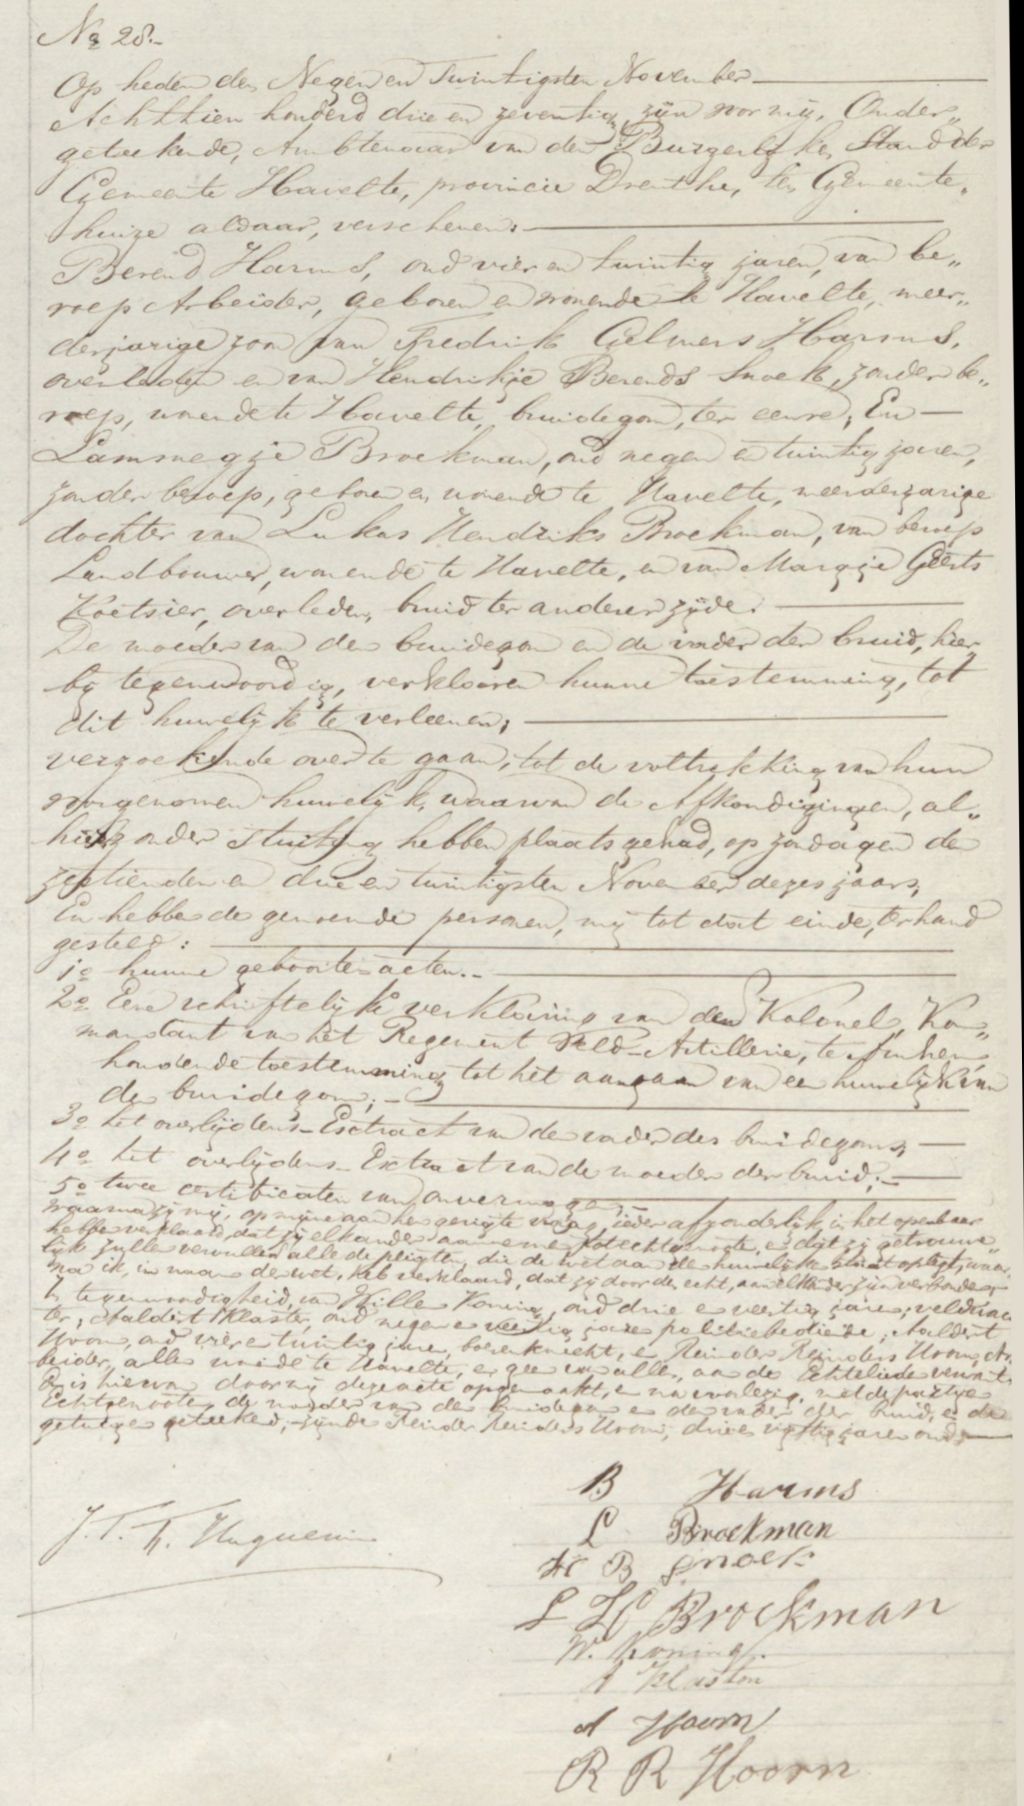 No 28.-
Op heden den Negen en twintigsten November
Achttien honderd drie en zeventig, zijn voor mij, Onder„
geteekende, Ambtenaar van den Burgerlijken Stand der
Gemeente Havelte, provincie Drenthe, ten Gemeente„
huize aldaar, verschenen:
Berend Harms, oud vier en twintig jaren, van be„
roep Arbeider, geboren en wonende te Havelte, meer„
derjarige zoon van Fredrik Gelmers Harms,
overleden en van Hendrikje Berends Snoek, zonder be„
roep, wonende te Havelte, bruidegom, ter eenre; En
Lammegje Broekman, oud negen en twintig jaren,
zonder beroep, geboren en wonende te Havelte, meerderjarige
dochter van Lukas Hendriks Broekman, van beroep
Landbouwer, wonende te Havelte, en van Margje Geerts
Koetsier, overleden, bruid ter anderer zijde.
De moeder van den bruidegom en de vader der bruid, hier
bij tegenwoordig, verklaaren hunne toestemming, tot
dit huwelijk te verleenen;
verzoekende over te gaan, tot de voltrekking van hun
voorgenomen huwelijk, waarvan de Afkondigingen, al„
hier zonder stuiting hebben plaats gehad, op zondagen den
zestienden en drie en twintigsten November dezes jaars;
En hebben de genoemde personen, mij tot dat einde, ter hand
gesteld:
1o hunne geboorte acten.-
2o Eene schriftelijke verklaring van den Kolonel, Kom„
mandant van het Regement Veld-Artillerie, te Arnhem
houdende toestemming tot het aangaan van een huwelijk van
den bruidegom;-
3o het overlijdens-Extract van de vader des bruidegoms;
4o het overlijdens-Extract van de moeder der bruid;-
5o twee certificaten van onvermogen;-
waarna zij mij, op mijne aan hen gerigte vraag, ieder afzonderlijk in het openbaar
hebben verklaard, dat zij elkander aannemen tot echtgenoote, en dat zij getrouwe„
lijk zullen vervullen alle de pligten, die de wet aan den huwelijken staat oplegt, waar„
na ik, in naam der wet, heb verklaard, dat zij door den echt, aan elkander zijn verbonden
In tegenwoordigheid, van Wille Koning, oud drie en veertig jaren, veldwach
ter; Aaldert Klaster, oud negen en veertig jaren politiebediende; Aaldert
Hoorn, oud vier en twintig jaren, boerenknecht, en Reinder Reinders Hoorn, Ar
beider, alle wonende te Havelte, en geen van allen, aan de Echtelieden verwant.
En is hiervan door mij deze acte opgemaakt, en na voorlezing, met de partijen
Echtgenooten, de moeder van den bruidegom en de vader der bruid, en de
getuigen geteekend, zijnde Reinder Reinders Hoorn, drie en vijftig jaren oud.
B Harms
L Broekman
H B Snoek
J. T. H. Huguenin
L H Broekman
W. Koning.
A Klaster
A Hoorn
R R Hoorn